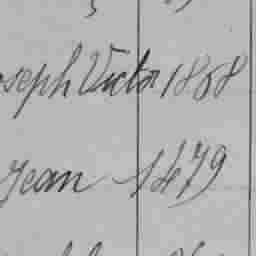 oseph Victor 1868
Jean 1479